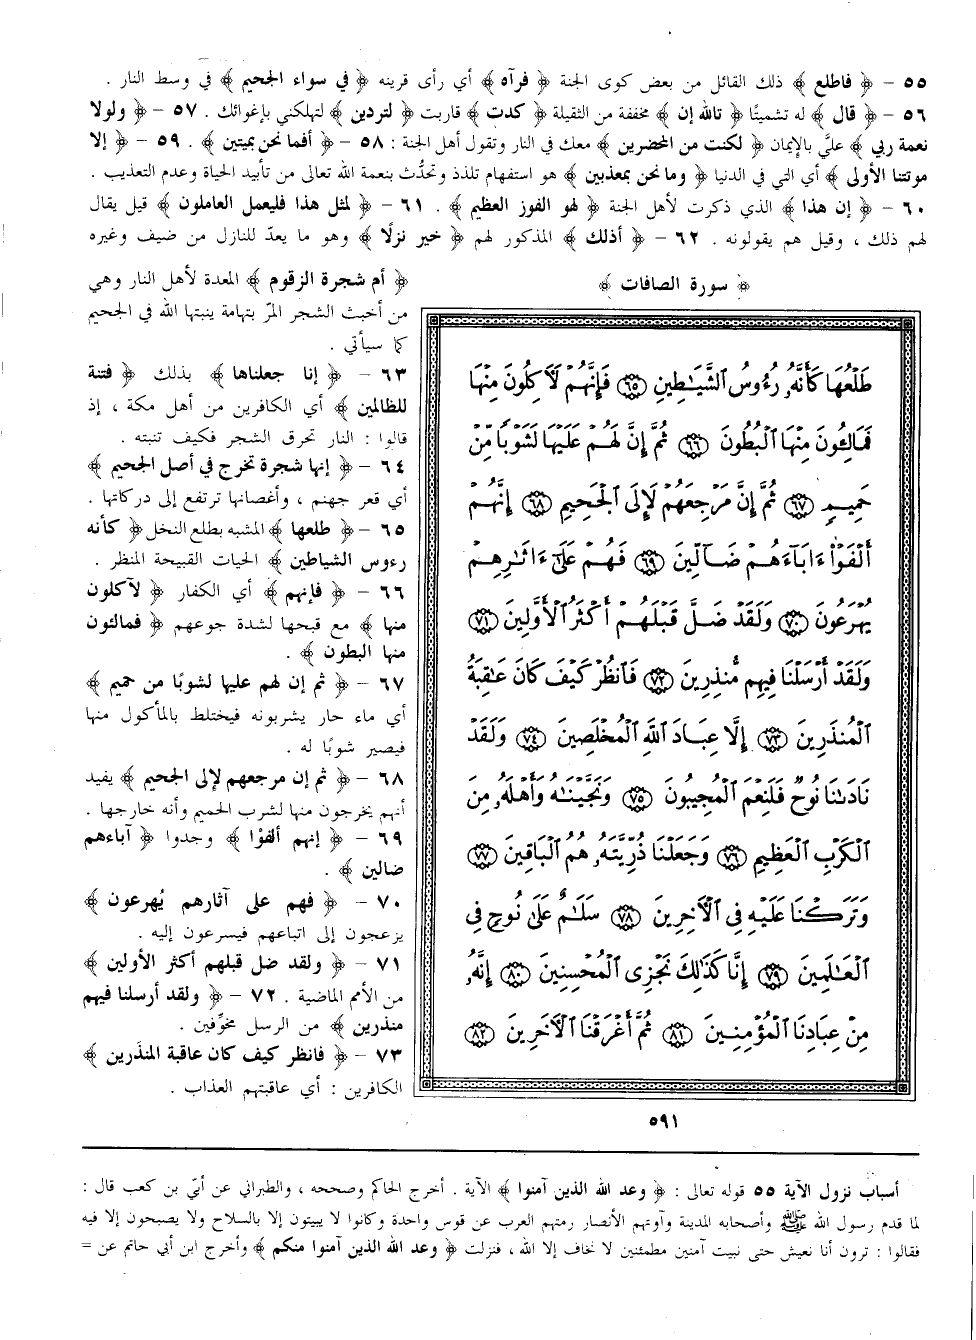 ٥٥ – ﴿ فاطلع ﴾ ذلك القائل من بعض كوى الجنة ﴿ فرآه ﴾ أي رأى قرينه ﴿ في سواء الجحيم ﴾ في وسط النار .
٥٦ – ﴿ قال ﴾ له تشميتًا ﴿ تالله إن ﴾ مخففة من الثقيلة ﴿ كدت ﴾ قاربت ﴿ لتردين ﴾ لتهلكني بإغوائك . ٥٧ – ﴿ ولولا
نعمة ربي ﴾ عليَّ بالإيمان ﴿ لكنت من المحضرين ﴾ معك في النار وتقول أهل الجنة : ٥٨ – ﴿ أفما نحن بميتين ﴾ . ٥٩ – ﴿ إلا
موتتنا الأولى ﴾ أي التي في الدنيا ﴿ وما نحن بمعذبين ﴾ هو استفهام تلذذ وتحدُّث بنعمة الله تعالى من تأبيد الحياة وعدم التعذيب .
٦٠ – ﴿ إن هذا ﴾ الذي ذكرت لأهل الجنة ﴿ لهو الفوز العظيم ﴾ . ٦١ – ﴿ لمثل هذا فليعمل العاملون ﴾ قيل يقال
لهم ذلك ، وقيل هم يقولونه . ٦٢ – ﴿ أذلك ﴾ المذكور لهم ﴿ خير نزلًا ﴾ وهو ما يعدّ للنازل من ضيف وغيره
﴿ أم شجرة الزقوم ﴾ المعدة لأهل النار وهي
من أخبث الشجر المرّ بتهامة ينبتها الله في الجحيم
كما سيأتي .
٦٣ – ﴿ إنا جعلناها ﴾ بذلك ﴿ فتنة
للظالمين ﴾ أي الكافرين من أهل مكة ، إذ
قالوا : النار تحرق الشجر فكيف تنبته .
٦٤ – ﴿ إنها شجرة تخرج في أصل الجحيم ﴾
أي قعر جهنم ، وأغصانها ترتفع إلى دركاتها .
٦٥ – ﴿ طلعها ﴾ المشبه بطلع النخل ﴿ كأنه
رءوس الشياطين ﴾ الحيات القبيحة المنظر .
٦٦ – ﴿ فإنهم ﴾ أي الكفار ﴿ لآكلون
منها ﴾ مع قبحها لشدة جوعهم ﴿ فمالئون
منها البطون ﴾ .
٦٧ – ﴿ ثم إن لهم عليها لشوبًا من حميم ﴾
أي ماء حار يشربونه فيختلط بالمأكول منها
فيصير شوبًا له .
٦٨ – ﴿ ثم إن مرجعهم لإلى الجحيم ﴾ يفيد
أنهم يخرجون منها لشرب الحميم وأنه خارجها .
٦٩ – ﴿ إنهم ألفوْا ﴾ وجدوا ﴿ آباءهم
ضالين ﴾ .
٧٠ – ﴿ فهم على آثارهم يُهرعون ﴾
يزعجون إلى اتباعهم فيسرعون إليه .
٧١ – ﴿ ولقد ضل قبلهم أكثر الأولين ﴾
من الأمم الماضية . ٧٢ – ﴿ ولقد أرسلنا فيهم
منذرين ﴾ من الرسل مخوِّفين .
٧٣ – ﴿ فانظر كيف كان عاقبة المنذَرين ﴾
الكافرين : أي عاقبتهم العذاب .
﴿ سورة الصافات ﴾
طَلْعُهَا كَأَنَّهُۥ رُءُوسُ ٱلشَّيَـٰطِينِ ٦٥ فَإِنَّهُمْ لَأٓكِلُونَ مِنْهَا
فَمَالِـُٔونَ مِنْهَا ٱلْبُطُونَ ٦٦ ثُمَّ إِنَّ لَهُمْ عَلَيْهَا لَشَوْبًا مِّنْ
حَمِيمٍ ٦٧ ثُمَّ إِنَّ مَرْجِعَهُمْ لَإِلَى ٱلْجَحِيمِ ٦٨ إِنَّهُمْ
أَلْفَوْا۟ ءَابَآءَهُمْ ضَآلِّينَ ٦٩ فَهُمْ عَلَىٰٓ ءَاثَـٰرِهِمْ
يُهْرَعُونَ ٧٠ وَلَقَدْ ضَلَّ قَبْلَهُمْ أَكْثَرُ ٱلْأَوَّلِينَ ٧١
وَلَقَدْ أَرْسَلْنَا فِيهِم مُّنذِرِينَ ٧٢ فَٱنظُرْ كَيْفَ كَانَ عَـٰقِبَةُ
ٱلْمُنذَرِينَ ٧٣ إِلَّا عِبَادَ ٱللَّهِ ٱلْمُخْلَصِينَ ٧٤ وَلَقَدْ
نَادَىٰنَا نُوحٌ فَلَنِعْمَ ٱلْمُجِيبُونَ ٧٥ وَنَجَّيْنَـٰهُ وَأَهْلَهُۥ مِنَ
ٱلْكَرْبِ ٱلْعَظِيمِ ٧٦ وَجَعَلْنَا ذُرِّيَّتَهُۥ هُمُ ٱلْبَاقِينَ ٧٧
وَتَرَكْنَا عَلَيْهِ فِى ٱلْأَخِرِينَ ٧٨ سَلَـٰمٌ عَلَىٰ نُوحٍ فِى
ٱلْعَـٰلَمِينَ ٧٩ إِنَّا كَذَٰلِكَ نَجْزِى ٱلْمُحْسِنِينَ ٨٠ إِنَّهُۥ
مِنْ عِبَادِنَا ٱلْمُؤْمِنِينَ ٨١ ثُمَّ أَغْرَقْنَا ٱلْأَخَرِينَ ٨٢
٥٩١
أسباب نزول الآية ٥٥ قوله تعالى : ﴿ وعد الله الذين آمنوا ﴾ الآية . أخرج الحاكم وصححه ، والطبراني عن أبيّ بن كعب قال :
لما قدم رسول الله ﷺ وأصحابه المدينة وآوتهم الأنصار رمتهم العرب عن قوس واحدة وكانوا لا يبيتون إلا بالسلاح ولا يصبحون إلا فيه
فقالوا : ترون أنا نعيش حتى نبيت آمنين مطمئنين لا نخاف إلا الله ، فنزلت ﴿ وعد الله الذين آمنوا منكم ﴾ وأخرج ابن أبي حاتم عن =